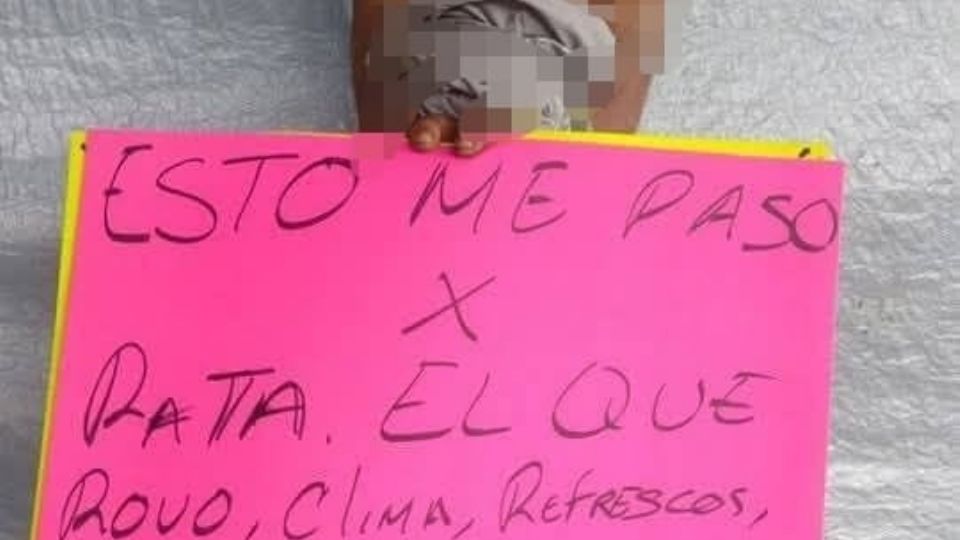 ESTO ME PASO
X
RATTA. EL QUE
ROVO, CLIMA, REFRESCOS,